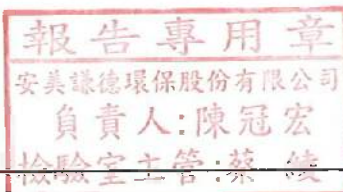 報告專用章
安美謙德環保股份有限公司
負責人:陳冠宏
檢驗室主管:蔡 崚